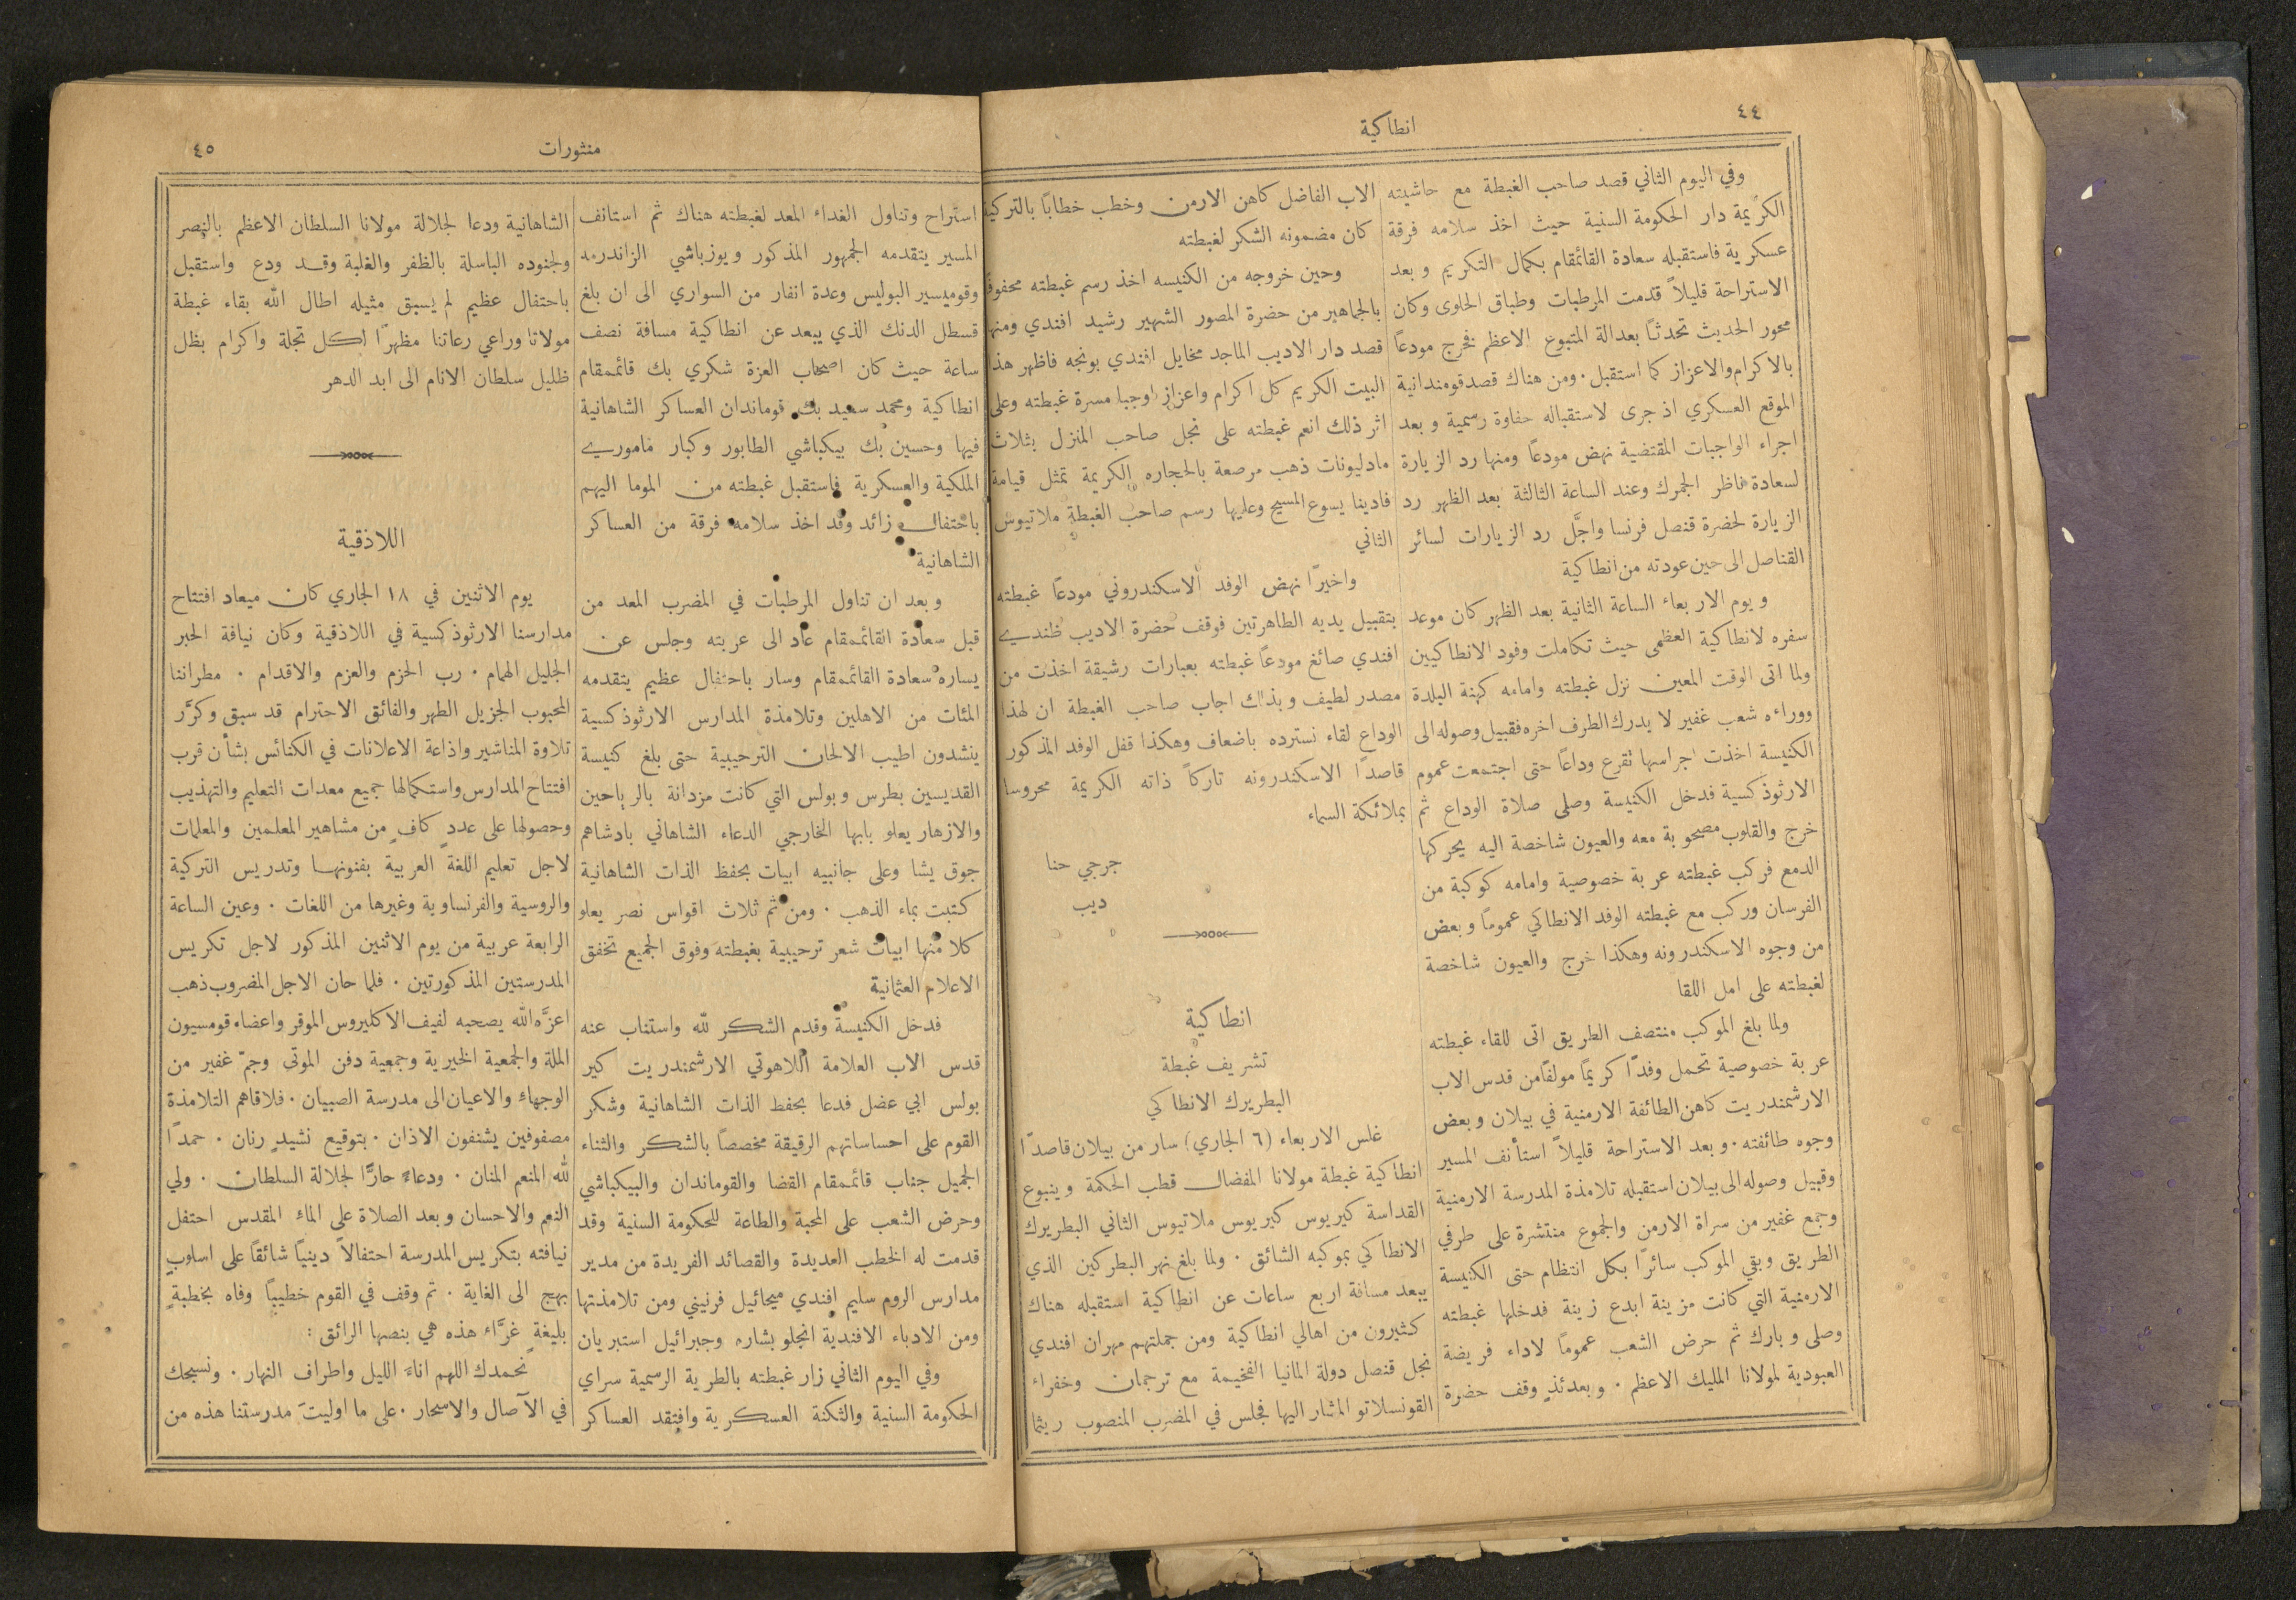 ٤٤
انطاكية
وفي اليوم الثاني قصد صاحب الغبطة مع حاشيته
الكريمة دار الحكومة السنية حيث اخذ سلامه فرقة
عسكرية فاستقبله سعادة القائمقام بكمال التكريم وبعد
الاستراحة قليلاً قدمت المرطبات وطباق الحلوى وكان
محور الحديث تحدثاً بعدالة المتبوع الاعظم فخرج مودعاً
بالاكرام والاعزاز كما استقبل. ومن هناك قصد قومندانية
الموقع العسكري اذ جرى لاستقباله حفاوة رسمية وبعد
اجراء الواجبات المقتضية نهض مودعاً ومنها رد الزيارة
لسعادة ناظر الجمرك وعند الساعة الثالثة بعد الظهر رد
الزيارة لحضرة قنصل فرنسا واجَّل رد الزيارات لسائر
القناصل الى حين عودته من انطاكية
ويوم الاربعاء الساعة الثانية بعد الظهر كان موعد
سفره لانطاكية العظمى حيث تكاملت وفود الانطاكيين
ولما اتى الوقت المعين نزل غبطته وامامه كهنة البلدة
ووراءه شعب غفير لا يدرك الطرف اخره فقبيل وصوله الى
الكنيسة اخذت اجراسها تقرع وداعاً حتى اجتمعت عموم
الارثوذكسية فدخل الكنيسة وصلى صلاة الوداع ثم
خرج والقلوب مصحوبة معه والعيون شاخصة اليه يحركها
الدمع فركب غبطته عربة خصوصية وامامه كوكبة من
الفرسان وركب مع غبطته الوفد الانطاكي عموماً وبعض
من وجوه الاسكندرونه وهكذا خرج والعيون شاخصة
لغبطته على امل اللقا
ولما بلغ الموكب منتصف الطريق اتى للقاء غبطته
عربة خصوصية تحمل وفدًا كريمًا مولفًا من قدس الاب
الارشمندريت كاهن الطائفة الارمنية في بيلان وبعض
وجوه طائفته. وبعد الاستراحة قليلاً استأنف المسير
وقبيل وصوله الى بيلان استقبله تلامذة المدرسة الارمنية
وجمع غفير من سراة الارمن والجموع منتشرة على طرفي
الطريق وبقي الموكب سائرًا بكل انتظام حتى الكنيسة
الارمنية التي كانت مزينة ابدع زينة فدخلها غبطته
وصلى وبارك ثم حرض الشعب عموماً لاداء فريضة
العبودية لمولانا المليك الاعظم. وبعدئذٍ وقف حضرة
الاب الفاضل كاهن الارمن وخطب خطابًا بالتركية
كان مضمونه الشكر لغبطته
وحين خروجه من الكنيسه اخذ رسم غبطته محفوفًا
بالجماهير من حضرة المصور الشهير رشيد افندي ومنها
قصد دار الاديب الماجد مخايل افندي بونجه فاظهر هذا
البيت الكريم كل اكرام واعزاز اوجبا مسرة غبطته وعلى
اثر ذلك انعم غبطته على نجل صاحب المنزل بثلاث
مادليونات ذهب مرصعة بالحجاره الكريمة تمثل قيامة
فادينا يسوع المسيح وعليها رسم صاحب الغبطة ملاتيوس
الثاني
واخيرًا نهض الوفد الاسكندروني مودعًا غبطته
بتقبيل يديه الطاهرتين فوقف حضرة الاديب ظندي
افندي صائغ مودعاً غبطته بعبارات رشيقة اخذت من
مصدر لطيف وبذلك اجاب صاحب الغبطة ان لهذا
الوداع لقاء نسترده باضعاف وهكذا قفل الوفد المذكور
قاصدًا الاسكندرونه تاركاً ذاته الكريمة محروسا
بملائكة السماء
جرجي حنا
ديب
انطاكية
تشريف غبطة
البطريرك الانطاكي
غلس الاربعاء (٦ الجاري) سار من بيلان قاصدًا
انطاكية غبطة مولانا المفضال قطب الحكمة وينبوع
القداسة كيريوس كيريوس ملاتيوس الثاني البطريرك
الانطاكي بموكبه الشائق. ولما بلغ نهر البطركين الذي
يبعد مسافة اربع ساعات عن انطاكية استقبله هناك
كثيرون من اهالي انطاكية ومن جملتهم مهران افندي
نجل قنصل دولة المانيا الفخيمة مع ترجمان وخفراء
القونسلاتو المشار اليها فجلس في المضرب المنصوب ريثما
منثورات
٤٥
استراح وتناول الغداء المعد لغبطته هناك ثم استانف
المسير يتقدمه الجمهور المذكور ويوزباشي الزاندرمه
وقوميسير البوليس وعدة انفار من السواري الى ان بلغ
قسطل الدنك الذي يبعد عن انطاكية مسافة نصف
ساعة حيث كان اصحاب العزة شكري بك قائمقام
انطاكية ومحمد سعيد بك قوماندان العساكر الشاهانية
فيها وحسين بك بيكباشي الطابور وكبار ماموري
الملكية والعسكرية فاستقبل غبطته من الموما اليهم
باحتفال زائد وقد اخذ سلامه فرقة من العساكر
الشاهانية
وبعد ان تناول المرطبات في المضرب المعد من
قبل سعادة القائمقام عاد الى عربته وجلس عن
يساره سعادة القائمقام وسار باحتفال عظيم يتقدمه
المئات من الاهلين وتلامذة المدارس الارثوذكسية
ينشدون اطيب الالحان الترحيبية حتى بلغ كنيسة
القديسين بطرس وبولس التي كانت مزدانة بالرياحين
والازهار يعلو بابها الخارجي الدعاء الشاهاني بادشاهم
جوق يشا وعلى جانبيه ابيات بحفظ الذات الشاهانية
كتبت بماء الذهب. ومن ثم ثلاث اقواس نصر يعلو
كلا منها ابيات شعر ترحيبية بغبطته وفوق الجميع تخفق
الاعلام العثمانية
فدخل الكنيسة وقدم الشكر لله واستناب عنه
قدس الاب العلامة اللاهوتي الارشمندريت كير
بولس ابي عضل فدعا بحفظ الذات الشاهانية وشكر
القوم على احساساتهم الرقيقة مخصصاً بالشكر والثناء
الجميل جناب قائمقام القضا والقوماندان والبيكباشي
وحرض الشعب على المحبة والطاعة للحكومة السنية وقد
قدمت له الخطب العديدة والقصائد الفريدة من مدير
مدارس الروم سليم افندي ميخائيل فرنيني ومن تلامذتها
ومن الادباء الافندية انجلو بشاره وجبرائيل استبريان
وفي اليوم الثاني زار غبطته بالطرية الرسمية سراي
الحكومة السنية والثكنة العسكرية وافتقد العساكر
الشاهانية ودعا لجلالة مولانا السلطان الاعظم بالنصر
ولجنوده الباسلة بالظفر والغلبة وقد ودع واستقبل
باحتفال عظيم لم يسبق مثيله اطال الله بقاء غبطة
مولانا وراعي رعاتنا مظهرًا لكل تجلة واكرام بظل
ظليل سلطان الانام الى ابد الدهر
اللاذقية
يوم الاثنين في ١٨ الجاري كان ميعاد افتتاح
مدارسنا الارثوذكسية في اللاذقية وكان نيافة الحبر
الجليل الهمام. رب الحزم والعزم والاقدام. مطراننا
المحبوب الجزيل الطهر والفائق الاحترام قد سبق وكرَّر
تلاوة المناشير واذاعة الاعلانات في الكنائس بشأن قرب
افتتاح المدارس واستكمالها جميع معدات التعليم والتهذيب
وحصولها على عددٍ كافٍ من مشاهير المعلمين والمعلمات
لاجل تعليم اللغة العربية بفنونها وتدريس التركية
والروسية والفرنساوية وغيرها من اللغات. وعين الساعة
الرابعة عربية من يوم الاثنين المذكور لاجل تكريس
المدرستين المذكورتين. فلما حان الاجل المضروب ذهب
اعزَّه الله يصحبه لفيف الاكليروس الموقر واعضاء قومسيون
الملة والجمعية الخيرية وجمعية دفن الموتى وجمّ غفير من
الوجهاء والاعيان الى مدرسة الصبيان. فلاقاهم التلامذة
مصفوفين يشنفون الاذان. بتوقيع نشيدٍ رنان. حمدًا
لله المنعم المنان. ودعاءً حارًّا لجلالة السلطان. ولي
النعم والاحسان وبعد الصلاة على الماء المقدس احتفل
نيافته بتكريس المدرسة احتفالاً دينيًا شائقاً على اسلوب
بهج الى الغاية. ثم وقف في القوم خطيبًا وفاه بخطبةٍ
بليغةٍ غرَّاء هذه هي بنصها الرائق:
نحمدك اللهم اناءَ الليل واطراف النهار. ونسبحك
في الآصال والاسحار. على ما اوليتَ مدرستنا هذه من